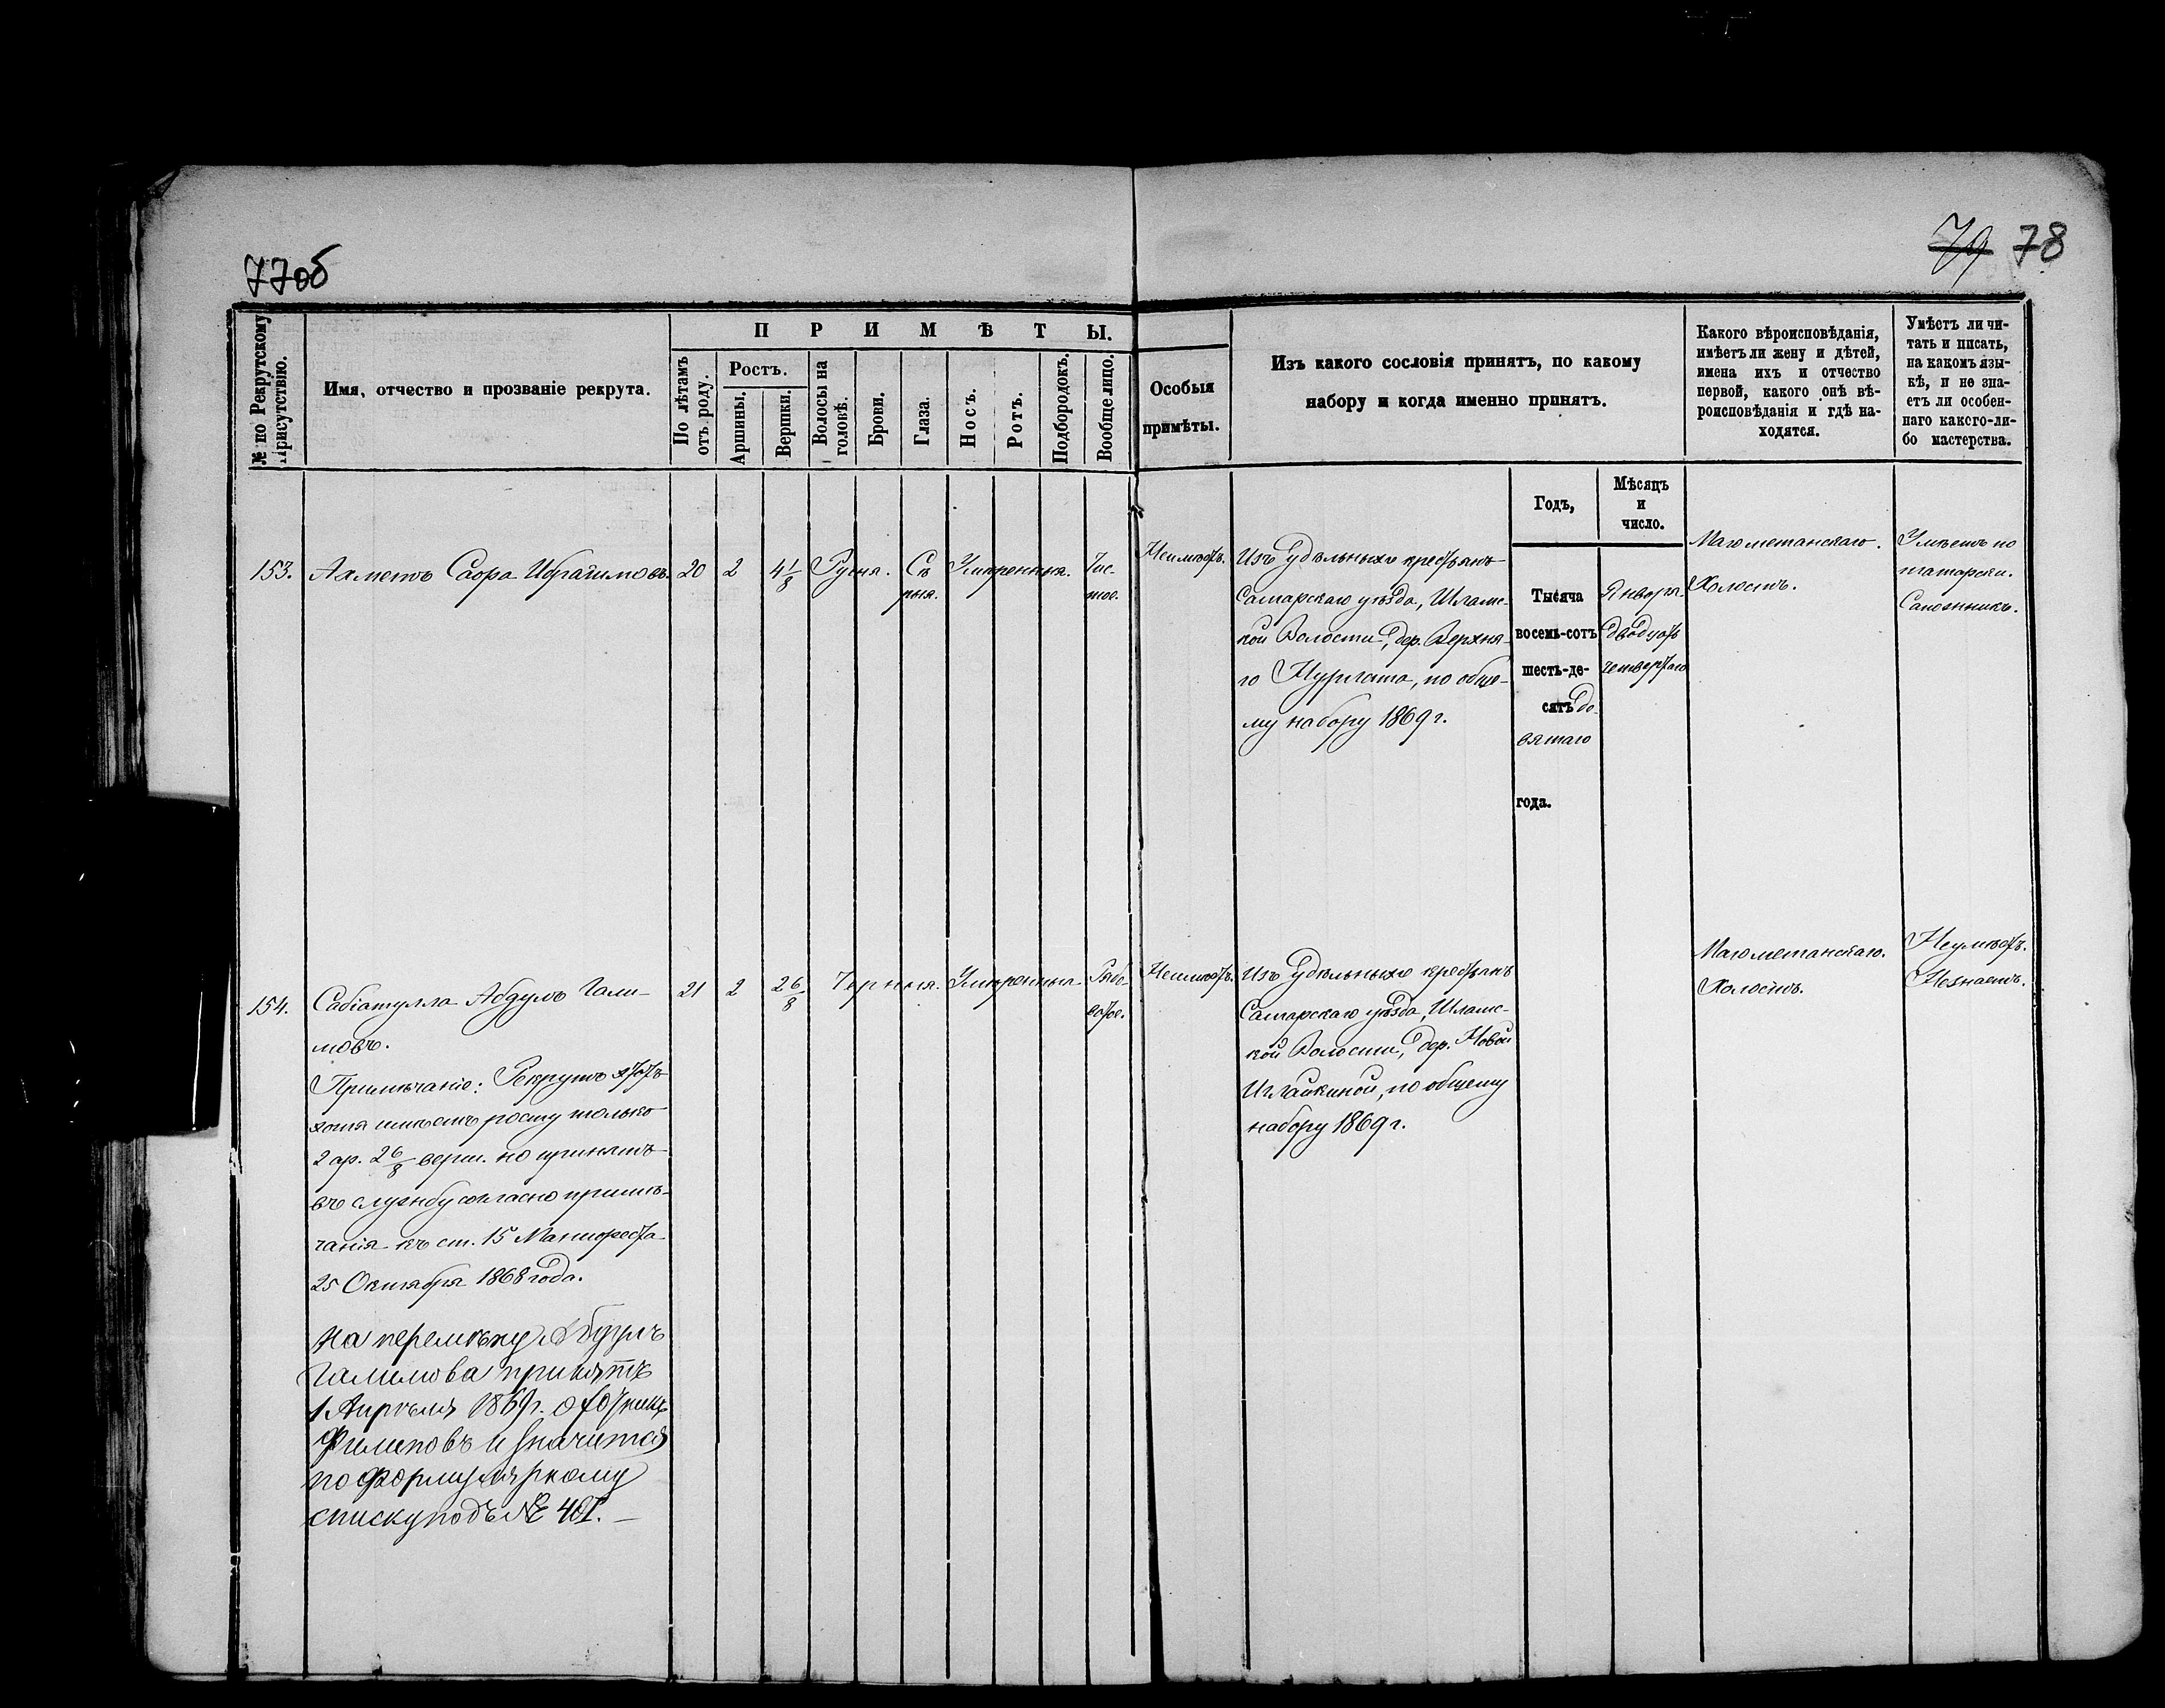 77об
79 78
№ по Рекрутскому Присутствію.
Имя, отчество и прозваніе рекрута.
ПРИМѢТЫ.
По лѣтамъ отъ роду.
Ростъ.
Аршины.
Вершки.
Волосы на головѣ.
Брови.
Глаза.
Носъ.
Ротъ.
Подбородокъ.
Вообще лицо.
Особыя
примѣты.
Изъ какого сословія принятъ, по какому
набору и когда именно принятъ.
Какого вѣроисповѣданія,
имѣетъ ли жену и дѣтей,
имена ихъ и отчество
первой, какого онѣ вѣ-
роисповѣданія и гдѣ на-
ходятся.
Умѣетъ ли чи-
тать и писать,
на какомъ язы-
кѣ, и не зна-
етъ ли особен-
наго какого-ли-
бо мастерства.
Годъ,
Мѣсяцъ
и
число.
153.
Ахметъ Сафа Ибрагимовъ.
20
2
4 1/8
Русыя.
Сѣ-
рыя.
Умѣренныя.
Чис-
тое.
Неимѣетъ.
Изъ Удѣльныхъ крестьянъ
Самарскаго уѣзда, Шламс-
кой Волости, дер. Верхня-
го Нурлата, по обще-
му набору 1869 г.
Тысяча
восемь-сотъ
шесть-де-
сятъ де-
вятаго
года.
Января
двадцать
четвертаго
Магометанскаго.
Холостъ.
Умѣетъ по
татарски.
Сапожникъ.
154.
Сабіатулла Абдулъ Гали-
мовъ.
Примѣчаніе: Рекрутъ этотъ
хотя имѣетъ росту только
2 ар. 2 6/8 верш. но принятъ
въ службу согласно примѣ-
чанія къ ст. 15 Манифеста
25 Октября 1868 года.
На перемѣну Абдулъ
Галимова принятъ
1 Апрѣля 1869 г.
Филиповъ и значится
по формулярному
списку подъ № 401.
21
2
2 6/8
Черныя.
Умѣренныя.
Рябо-
ватое.
Неимѣетъ.
Изъ Удѣльныхъ крестьянъ
Самарскаго уѣзда, Шламс-
кой Волости, дер. Новой
Иглайкиной, по общему
набору 1869 г.
Магометанскаго.
Холостъ.
Неумѣетъ.
Незнаетъ.